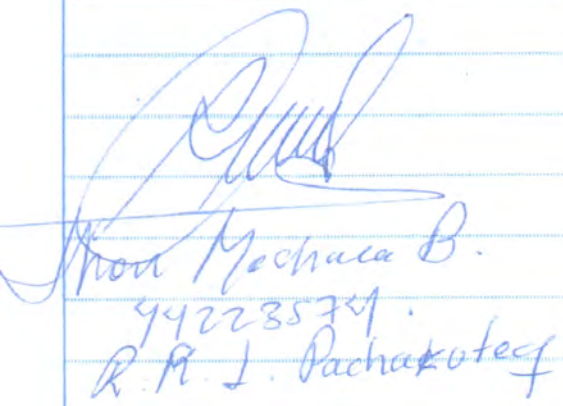 Jhon Machaca B.
44223574.
R.M.I. Pachakoteq